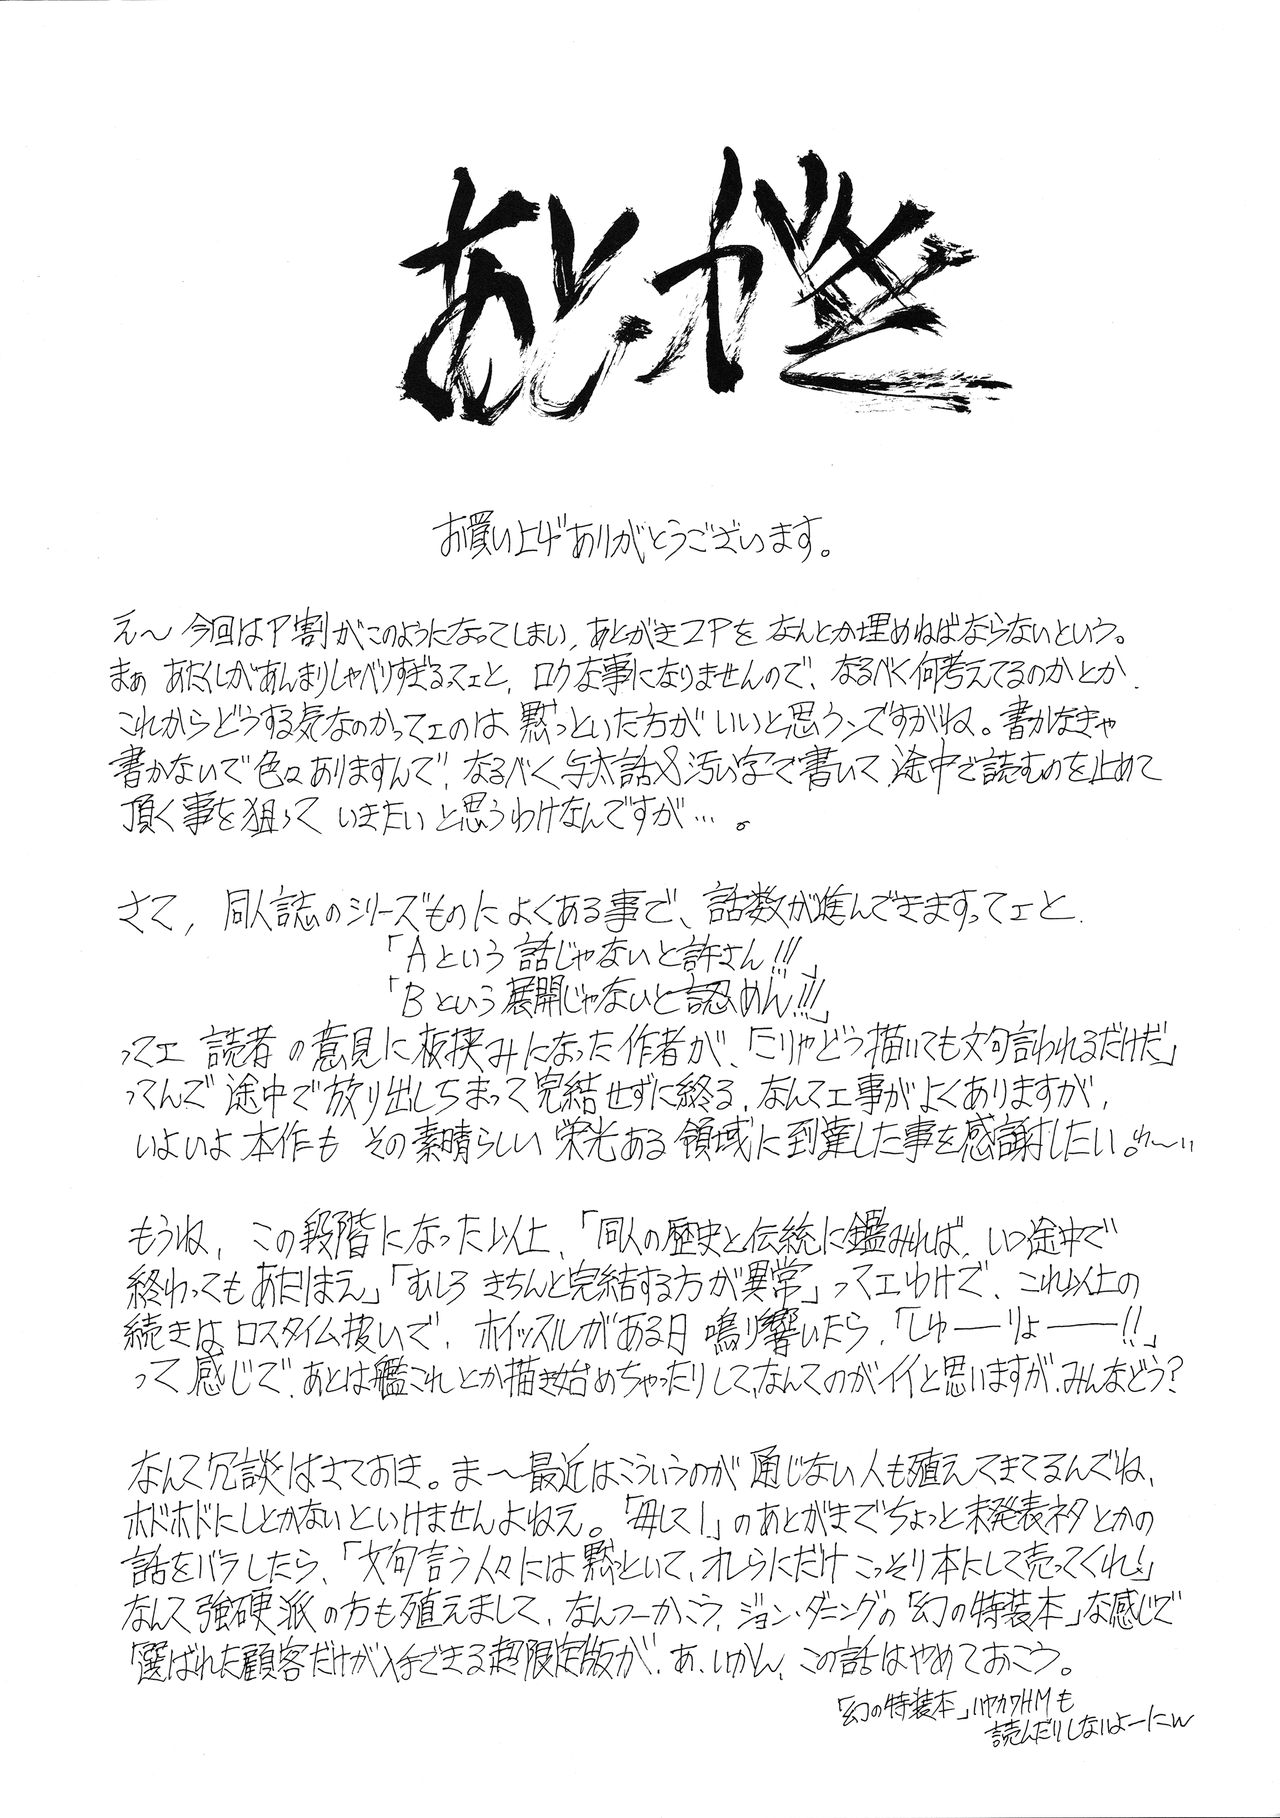 あとがき
お買い上げありがとうございます。
え〜今回はP割がこのようになってしまい、あとがき2Pをなんとか埋めねばならないという。
まぁあたくしがあんまりしゃべりすぎるってェと、ロクな事になりませんので、なるべく何考えてるのかとか
これからどうする気なのかってェのは黙っといた方がいいと思うンですがね。書かなきゃ
書かないで色々ありますんで、なるべく与太話&汚い字で書いて途中で読むのを止めて
頂く事を狙っていきたいと思うわけなんですが…。
さて、同人誌のシリーズものによくある事で、話数が進んできますってェと
「Aという話じゃないと許さん!!!」
「Bという展開じゃないと認めん!!!」
ってェ読者の意見に板挟みになった作者が、「こりゃどう描いても文句言われるだけだ」
ってんで途中で放り出しちまって完結せずに終る、なんてェ事がよくありますが、
いよいよ本作もその素晴らしい栄光ある領域に到達した事を感謝したい。わ〜い
もうね、この段階になった以上、「同人の歴史と伝統に鑑みれば、いつ途中で
終わってもあたりまえ」「むしろきちんと完結する方が異常」ってェわけで、これ以上の
続きはロスタイム扱いで、ホイッスルがある日鳴り響いたら、「しゅーーりょーーー!!」
って感じで、あとは艦これとか描き始めちゃったりして、なんてのがイイと思いますが、みんなどう?
なんて冗談はさておき。ま〜最近はこういうのが通じない人も殖えてきてるんでね、
ホドホドにしとかないといけませんよねえ。「毋して!」のあとがきでちょっと未発表ネタとかの
話をバラしたら、「文句言う人々には黙っといて、オレらにだけこっそり本にして売ってくれ!」
なんて強硬派の方も殖えまして、なんつーかこう、ジョン・ダニングの「幻の特装本」な感じで
「選ばれた顧客だけが入手できる超限定版が、あ、いかん、この話はやめておこう。
「幻の特装本」ハヤカワHMも
読んだりしないよーにw